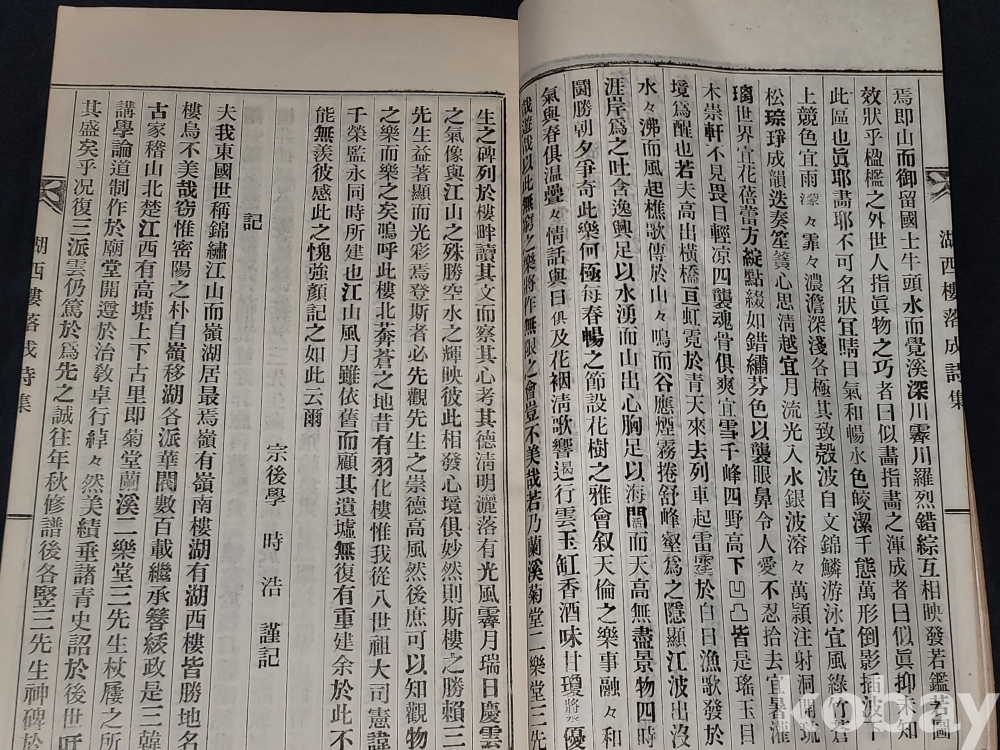 湖西樓落成詩集
焉即山而御留國土牛頭水而覺溪深川霽川羅烈錯綜互相映發若鑑若圖
效狀乎楹檻之外世人指眞物之巧者曰似畵指畵之渾成者曰似眞抑未知
此區也眞耶畵耶不可名狀宜晴日氣和暢水色皎潔千態萬形倒影插波下
上競色宜雨濛々霏々濃澹深淺各極其致縠波自文錦鱗游泳宜風綠竹蒼
松琮琤成韻迭奏笙簧心思淸越宜月流光入水銀波溶々萬頴注射洞開玩
璃世界宜花蓓蕾方綻點綴如錯繡芬色以襲眼鼻令人愛不忍拾去宜暑灌
木崇軒不見畏日輕凉四襲魂骨俱爽宜雪千峰四野高下凹凸皆是瑤玉目
境爲醒也若夫高出橫橋亘虹霓於青天來去列車起雷霆於白日漁歌發於
水々沸而風起樵歌傳於山々鳴而谷應煙霧捲舒峰壑爲之隱顯江波出沒
涯岸爲之吐含逸興足以水湧而山出心胸足以海闊而天高無盡景物四
鬪勝朝夕爭奇此樂何極每春暢之節設花樹之雅會叙天倫之樂事融々和
氣與春俱温亹々情話與日俱及花裀淸歌響遏行雲玉缸香酒味甘瓊將求優
哉遊哉以此無窮之樂將作無限之會豈不美哉若乃蘭溪菊堂二樂堂三先
生之碑列於樓畔讀其文而察其心考其德淸明灑落有光風霽月瑞日慶雲
之氣像與江山之殊勝空水之輝映彼此相發心境俱妙然則斯樓之勝賴三
先生益著顯而光彩焉登斯者必先觀先生之崇德高風然後庶可以知觀物
之樂而樂之矣嗚呼此樓北莾蒼之地昔有羽化樓惟我從八世祖大司憲諱
千榮監永同時所建也江山風月雖依舊而顧其遺墟無復有重建余於此不
能無羨彼感此之愧強顏記之如此云爾
宗後學 時浩 謹記
記
夫我東國世稱錦繡江山而嶺湖居最焉嶺有嶺南樓湖有湖西樓皆勝地名
樓烏不美哉窃惟密陽之朴自嶺移湖各派華閥數百載繼承簪綬政是三韓
古家稽山北楚江西有高塘上下古里即菊堂蘭溪二樂堂三先生杖屨之所
講學論道制作於廟堂開遵於治敎卓行綽々然美績垂諸青史詔於後世
其盛矣乎况復三派雲仍篤於爲先之誠往年秋修譜後各竪三先生神碑於
湖西樓落成詩集
kobay